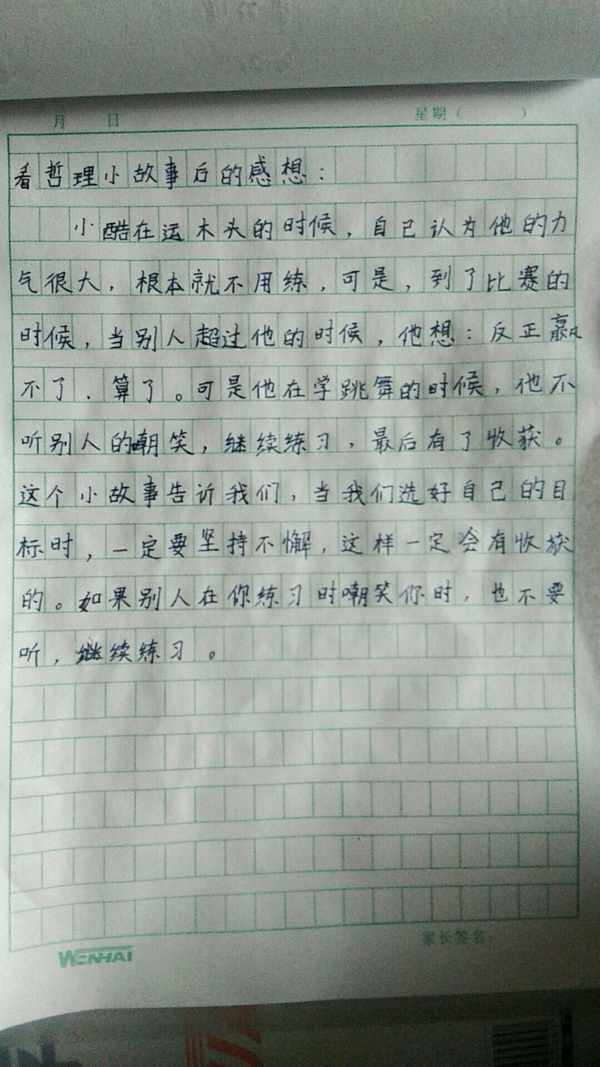 月 日 星期（ ）
看哲理小故事后的感想：
小酷在运木头的时候，自己认为他的力
气很大，根本就不用练，可是，到了比赛的
时候，当别人超过他的时候，他想：反正赢
不了．算了。可是他在学跳舞的时候，他不
听别人的嘲笑，继续练习，最后有了收获。
这个小故事告诉我们，当我们选好自己的目
标时，一定要坚持不懈，这样一定会有收获
的。如果别人在你练习时嘲笑你时，也不要
听，继续练习。
家长签名：
WENHAI